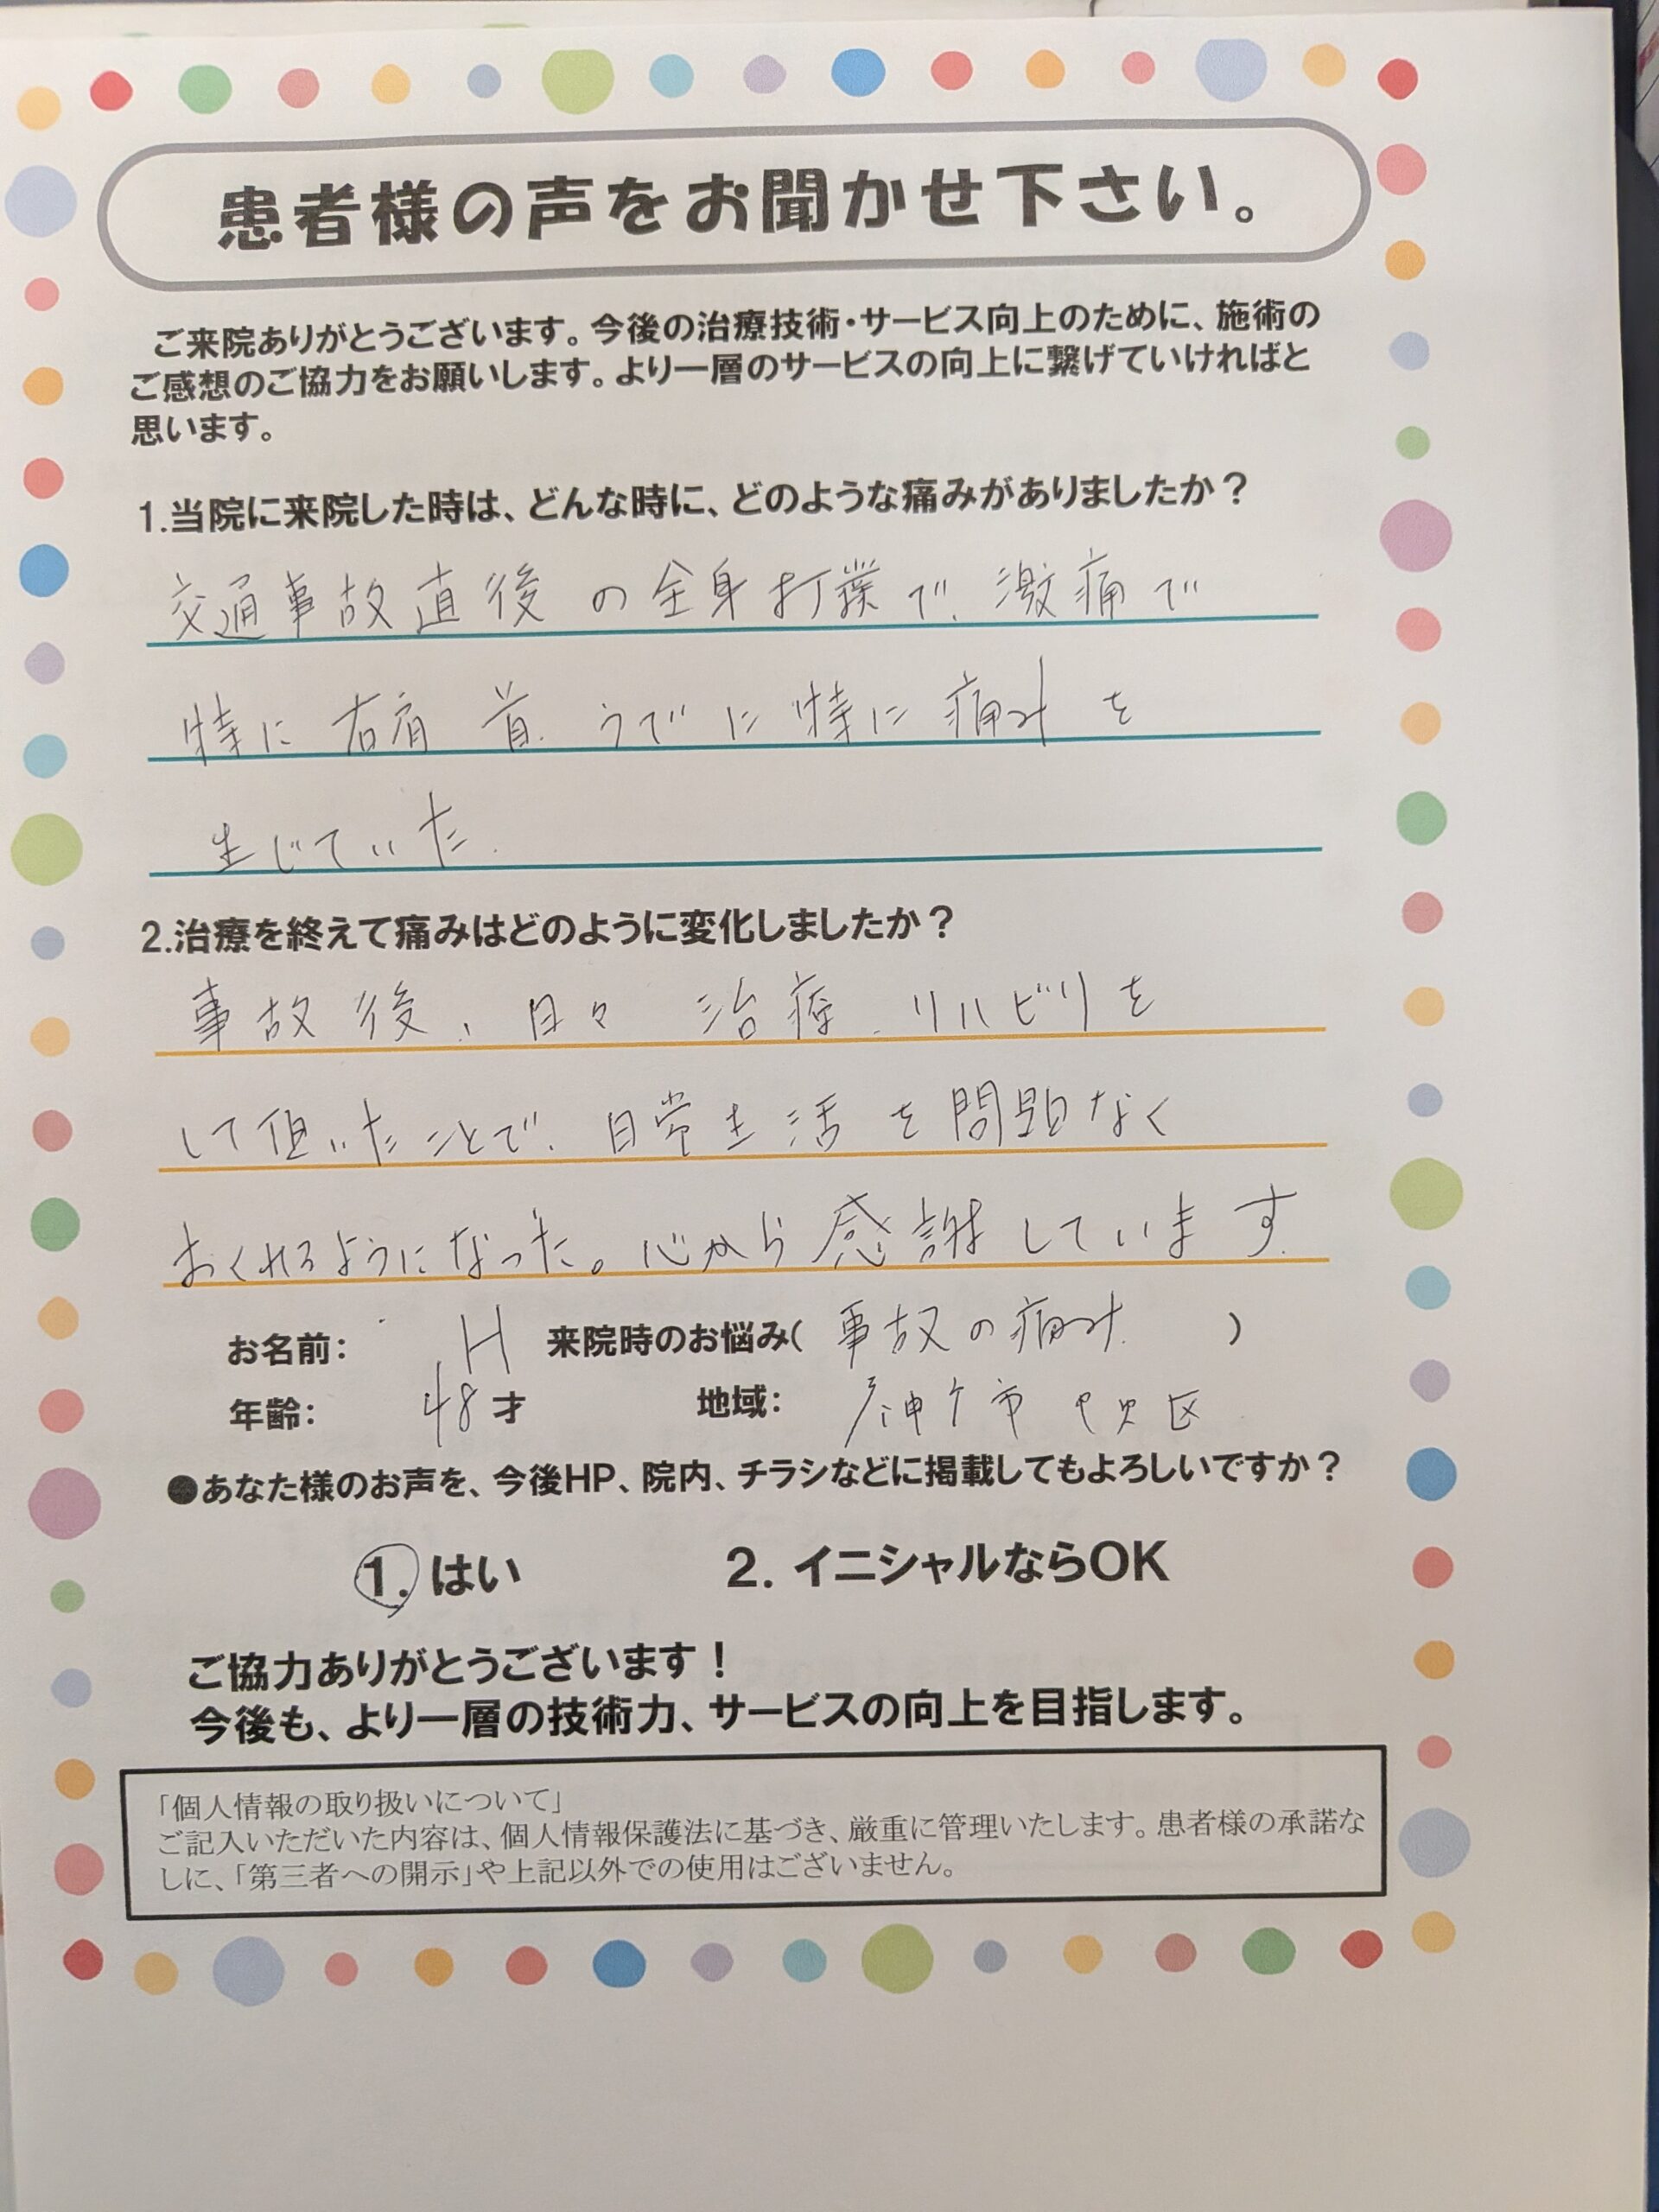 患者様の声をお聞かせ下さい。
ご来院ありがとうございます。今後の治療技術・サービス向上のために、施術の
ご感想のご協力をお願いします。より一層のサービスの向上に繋げていければと
思います。
1.当院に来院した時は、どんな時に、どのような痛みがありましたか？
交通事故直後の全身打撲で、激痛で
特に右肩 首、うでに特に痛みを
生じていた.
2.治療を終えて痛みはどのように変化しましたか？
事故後、日々 治療、リハビリを
して頂いたことで、日常生活を問題なく
おくれるようになった。心から感謝しています.
お名前： H 来院時のお悩み（ 事故の痛み. ）
年齢： 48才 地域： 市 中央区
●あなた様のお声を、今後HP、院内、チラシなどに掲載してもよろしいですか？
1. はい 2. イニシャルならOK
ご協力ありがとうございます！
今後も、より一層の技術力、サービスの向上を目指します。
「個人情報の取り扱いについて」
ご記入いただいた内容は、個人情報保護法に基づき、厳重に管理いたします。患者様の承諾な
しに、「第三者への開示」や上記以外での使用はございません。